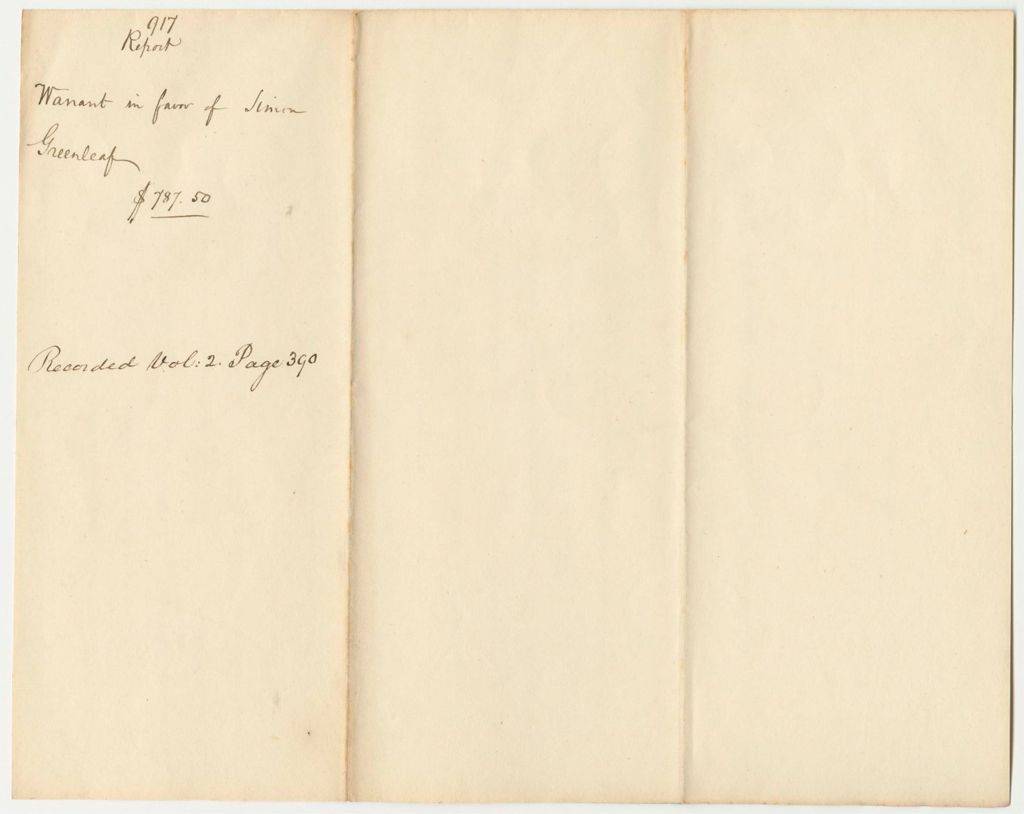 917
Report
Warrant in favor of Simon
Greenleaf
$ 787.50
Recorded Vol: 2. Page 390